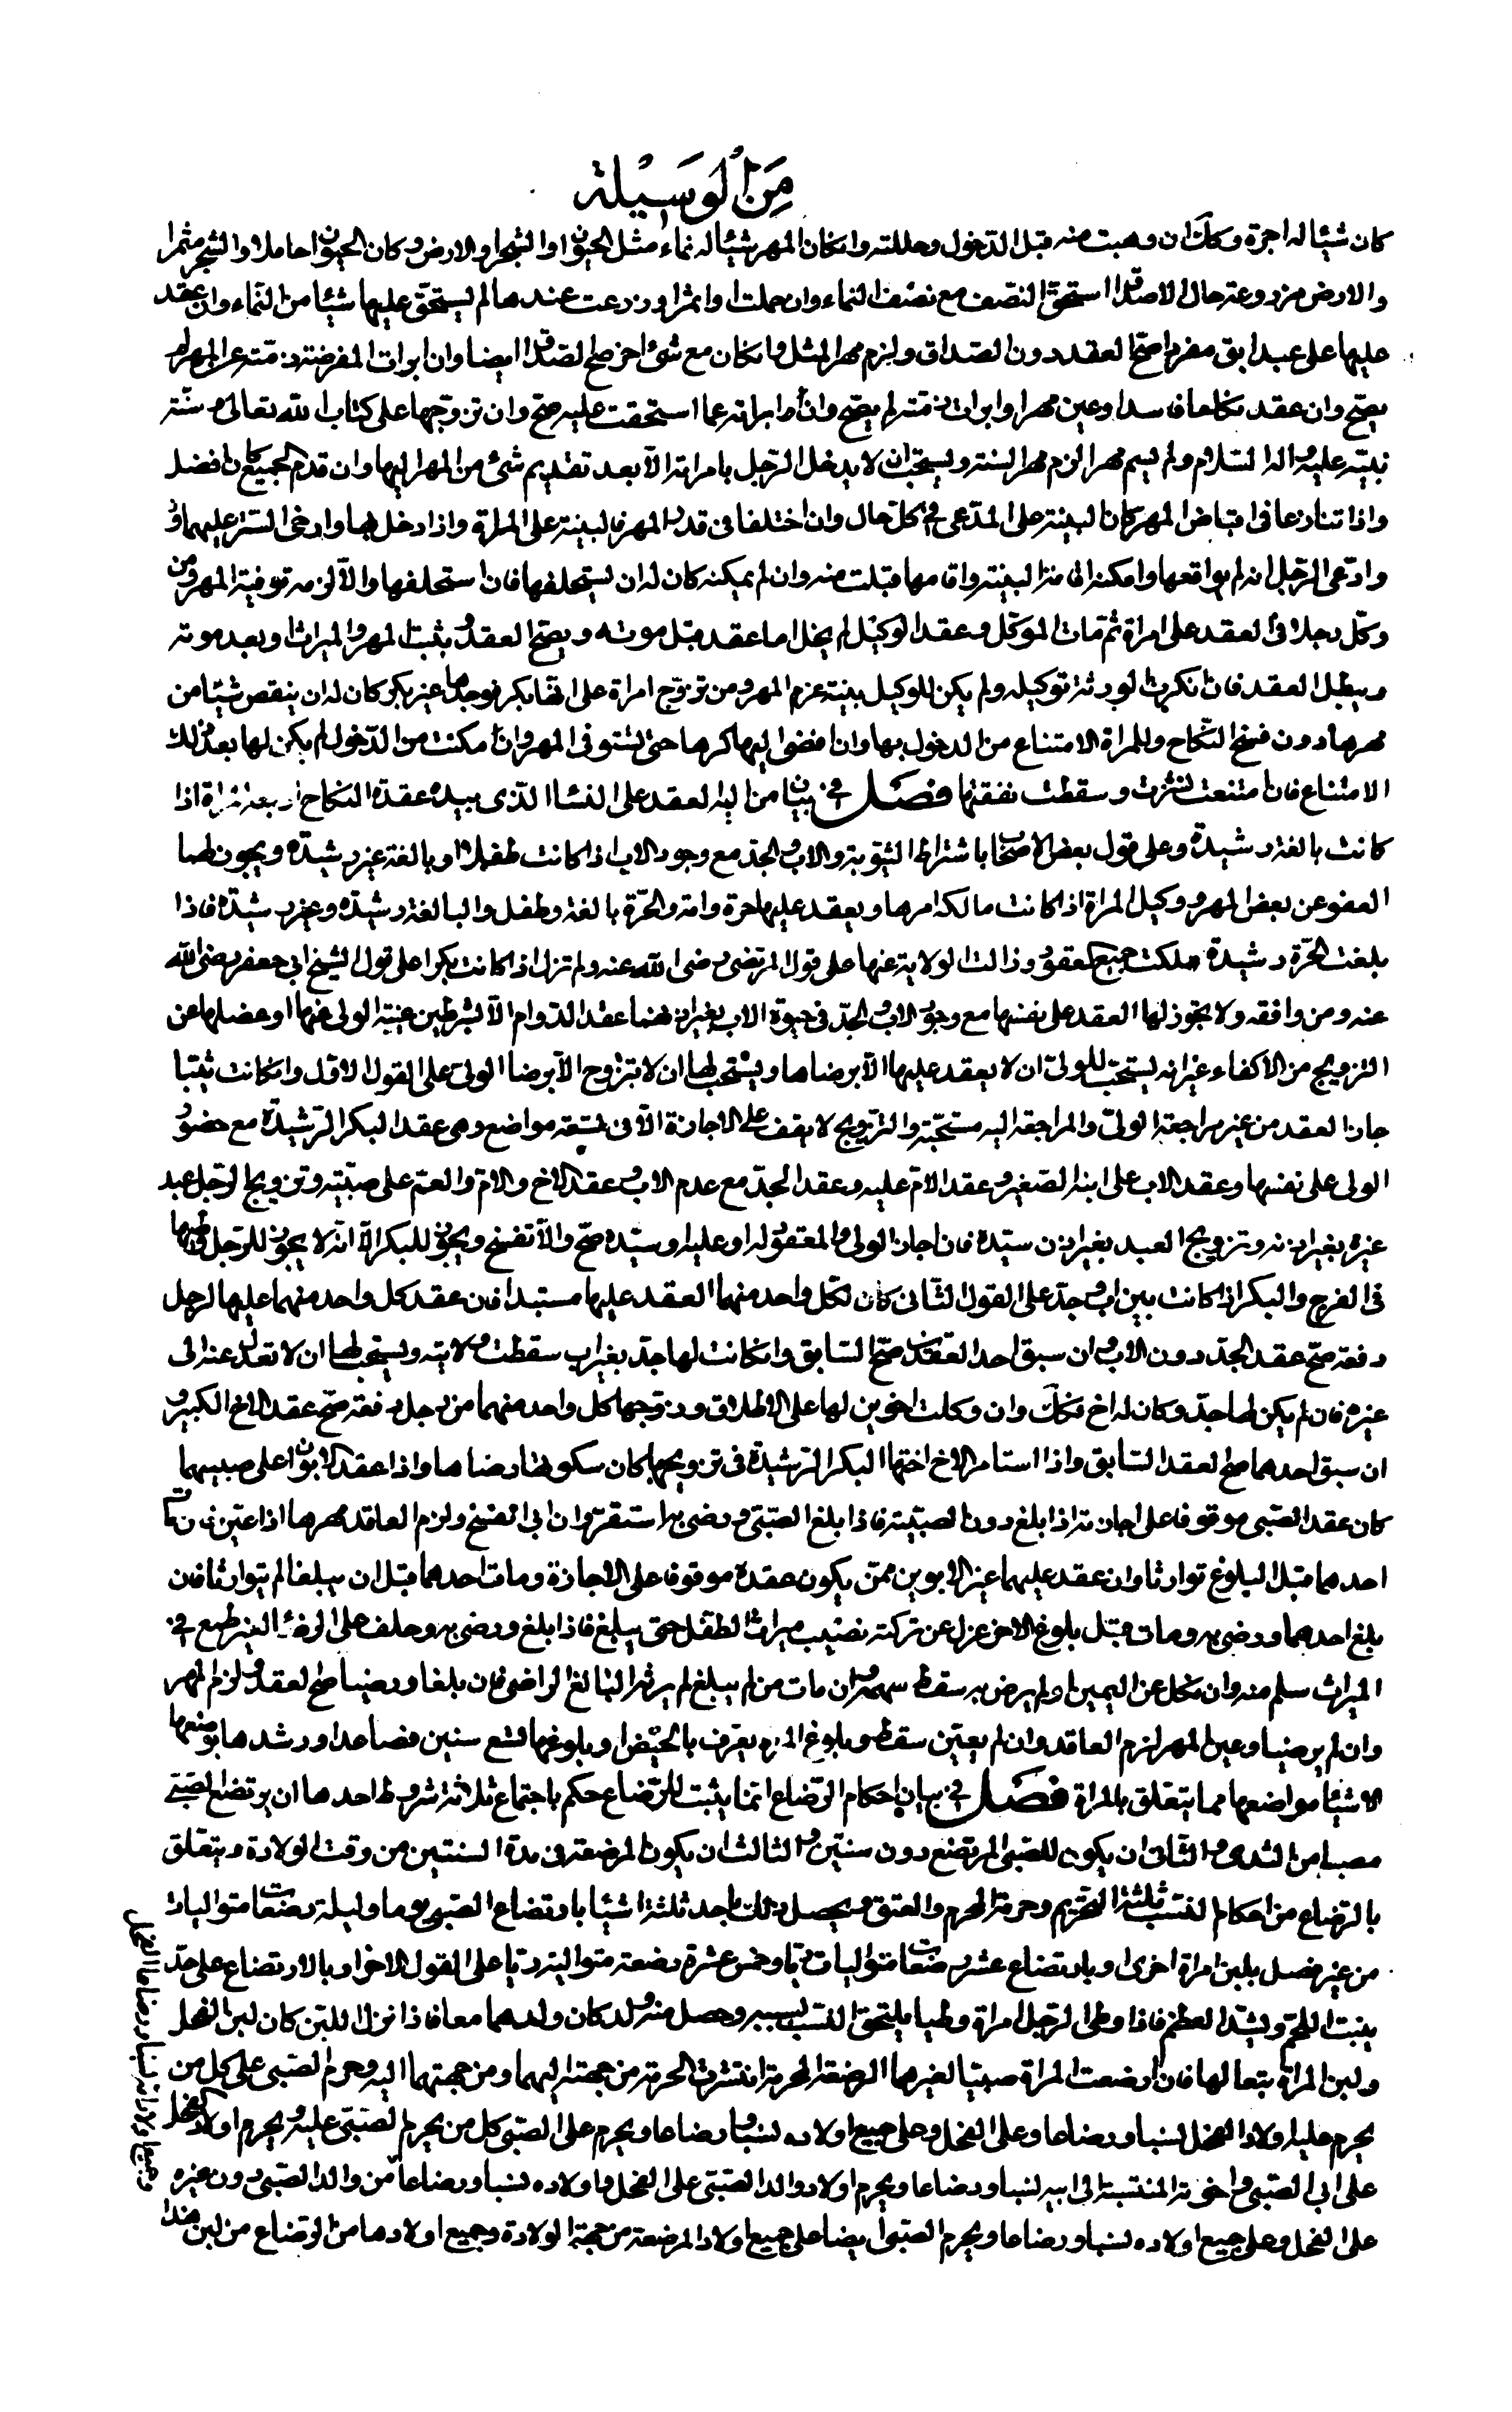 من الوسيلة
كان شيئا له اجرة وكك ان وهبت منه قبل الدخول وحللته وان كان المهر شيئا له نماء مثل الحيوان او الشجر او الارض وكان الحيوان حاملا والشجر مثمرا
والارض مزروعة حال الاصداق استحق النصف مع نصف النماء وان حملت او اثمر او زرعت عندها لم يستحق عليها شيئا من النماء وان عقد
عليها على عبد ابق مفردا صح العقد دون الصداق ولزم مهر المثل وان كان مع شئ اخر صح الصداق ايضا وان ابرات المفوضة ذمته عن المهر لم
يصح وان عقد نكاحا فاسدا وعين مهرا وابرات ذمته لم يصح وان ابراته عما استحقت عليه صح وان تزوجها على كتاب الله تعالى وسنة
نبيه عليه واله السلام ولم يسم مهرا لزم مهر السنة ويستحب ان لا يدخل الرجل بامراته الا بعد تقديم شئ من المهر اليها وان قدم الجميع كان افضل
واذا تنازعا فى اقباض المهر كان البينة على المدعى فى كل حال وان اختلفا فى قدر المهر فالبينة على المراة واذا دخل بها وارخى الستر عليهما
وادعى الرجل انه لم يواقعها وامكنه اقامة البينة واقامها قبلت منه وان لم يمكنه كان له ان يستحلفها فان استحلفها والا لزمه توفية المهر ومن
وكل رجلا فى العقد على امراة ثم مات الموكل وعقد الوكيل لم يخل اما عقد قبل موته ويصح العقد ويثبت المهر والميراث او بعد موته
ويبطل العقد فان انكرت الورثة توكيله ولم يكن للوكيل بينة غرم المهر ومن تزوج امراة على انها بكر فوجدها غير بكر كان له ان ينقص شيئا من
مهرها دون فسخ النكاح وللمراة الامتناع من الدخول بها وان افضوا اليها كرها حتى تستوفى المهر وان مكنت من الدخول لم يكن لها بعد ذلك
الامتناع فان امتنعت نشزت وسقطت نفقتها فصل فى بيان من اليه العقد على النساء الذى بيده عقدة النكاح اربعة المراة اذا
كانت بالغة رشيدة وعلى قول بعض الاصحاب باشتراط الثيوبة والاب والجد مع وجود الاب اذا كانت طفلا او بالغة غير رشيدة ويجوز لهما
العفو عن بعض المهر ووكيل المراة اذا كانت مالكة امرها ويعقد عليها حرة وامة والحرة بالغة وطفل والبالغة رشيدة وغير رشيدة فاذا
بلغت الحرة رشيدة ملكت جميع العقود وزالت الولاية عنها على قول المرتضى رضى الله عنه ولم تزل اذا كانت بكرا على قول الشيخ ابى جعفر رضى الله
عنه ومن وافقه ولا يجوز لها العقد على نفسها مع وجود الاب والجد فى حيوة الاب بغير اذنهما عقد الدوام الا بشرطين غيبة الولى عنها او عضلها عن
التزويج من الاكفاء غير انه يستحب للولى ان لا يعقد عليها الا برضاها ويستحب لها ان لا تتزوج الا برضا الولى على القول الاول وان كانت ثيبا
جاز العقد من غير مراجعة الولى والمراجعة اليه مستحبة والتزويج لا يقف على الاجازة الا فى تسعة مواضع وهى عقد البكر الرشيدة مع حضور
الولى على نفسها وعقد الاب على ابنه الصغير وعقد الام عليه وعقد الجد مع عدم الاب وعقد الاخ والام والعم على صبية وتزويج الرجل عبد
غيره بغير اذنه وتزويج العبد بغير اذن سيده فان اجاز الولى والمعقود له او عليه وسيده صح والا انفسخ ويجوز للبكر الا انه لا يجوز للرجل وطيها
فى الفرج والبكر اذا كانت بين اب وجد على القول الثانى كان لكل واحد منهما العقد عليها مستبدا فان عقد كل واحد منهما عليها لرجل
دفعة صح عقد الجد دون الاب وان سبق احد العقدين صح السابق وان كانت لها جد بغير اب سقطت ولايته ويستحب لها ان لا تعدل عنه الى
غيره فان لم يكن لها جد وكان له اخ فكك وان وكلت اخوين لها على الاطلاق وزوجها كل واحد منهما من رجل دفعة صح عقد الاخ الكبير و
ان سبق احدهما صح العقد السابق واذا استامر الاخ اختها البكر الرشيدة فى تزويجها كان سكوتها رضاها واذا عقد الابوان على صبيهما
كان عقد الصبى موقوفا على اجازته اذا بلغ دون الصبية فاذا بلغ الصبى ورضى به استقر وان ابى انفسخ ولزم العاقد مهرها اذا عين فان مات
احدهما قبل البلوغ توارثا وان عقد عليهما غير الابوين ممن يكون عقده موقوفا على الاجازة ومات احدهما قبل ان يبلغا لم يتوارثا فان
بلغ احدهما ورضى به ومات قبل بلوغ الاخر عزل عن تركته نصيب ميراث الطفل حتى يبلغ فاذا بلغ ورضى به وحلف على الرضا لغير طمع فى
الميراث سلم منه وان نكل عن اليمين او لم يرض به سقط سهمه وان مات من لم يبلغ لم يرثه البالغ الراضى فان بلغا ورضيا صح العقد ولزم المهر
وان لم يرضيا وعين المهر لزم العاقد وان لم يعين سقط وبلوغ المرءة يعرف بالحيض او بلوغها تسع سنين فصاعدا ورشدها بوضعها
الاشياء مواضعها مما يتعلق بالمراة فصل فى بيان احكام الرضاع انما يثبت للرضاع حكم باجتماع ثلاثة شروط احدها ان يرتضع الصبى
مصا من الثدى والثانى ان يكون للصبى المرتضع دون سنتين والثالث ان يكون المرضعة فى مدة السنتين من وقت الولادة ويتعلق
بالرضاع من احكام النسب ثلثة التحريم وحرمة المحرم والعتق ويحصل ذلك باحد ثلثة اشياء بارتضاع الصبى يوما وليلة رضعات متواليات
من غير فصل بلبن امراة اخرى او بارتضاع عشر رضعات متواليات وخمس عشرة رضعة متوالية على القول الاخر او بالارتضاع على حد
ينبت اللحم ويشد العظم فاذا وطى الرجل امراة وطيا يلتحق النسب بسببه وحصل منه ولد كان ولدهما معا فاذا نزل اللبن كان لبن الفحل
ولبن المراة تبعا لها فان ارضعت المراة صبيا لغيرهما الرضعة المحرمة انتشرت الحرمة من جهته اليهما ومن جهتهما اليه وحرم الصبى على كل من
يحرم عليه اولاد الفحل نسبا ورضاعا وعلى الفحل وعلى جميع اولاده نسبا ورضاعا ويحرم على الصبى كل من يحرم الصبى عليه ويحرم اولاد الفحل
على اب الصبى واخوته المنتسبة الى ابيه نسبا ورضاعا ويحرم اولاد والد الصبى على الفحل واولاده نسبا ورضاعا من والد الصبى دون غيره
على الفحل وعلى جميع اولاده نسبا ورضاعا ويحرم الصبى ايضا على جميع اولاد المرضعة من جهة الولادة وجميع اولادها من الرضاع من لبن هذا
وجميع اولاده نسبا ورضاعا الفحل